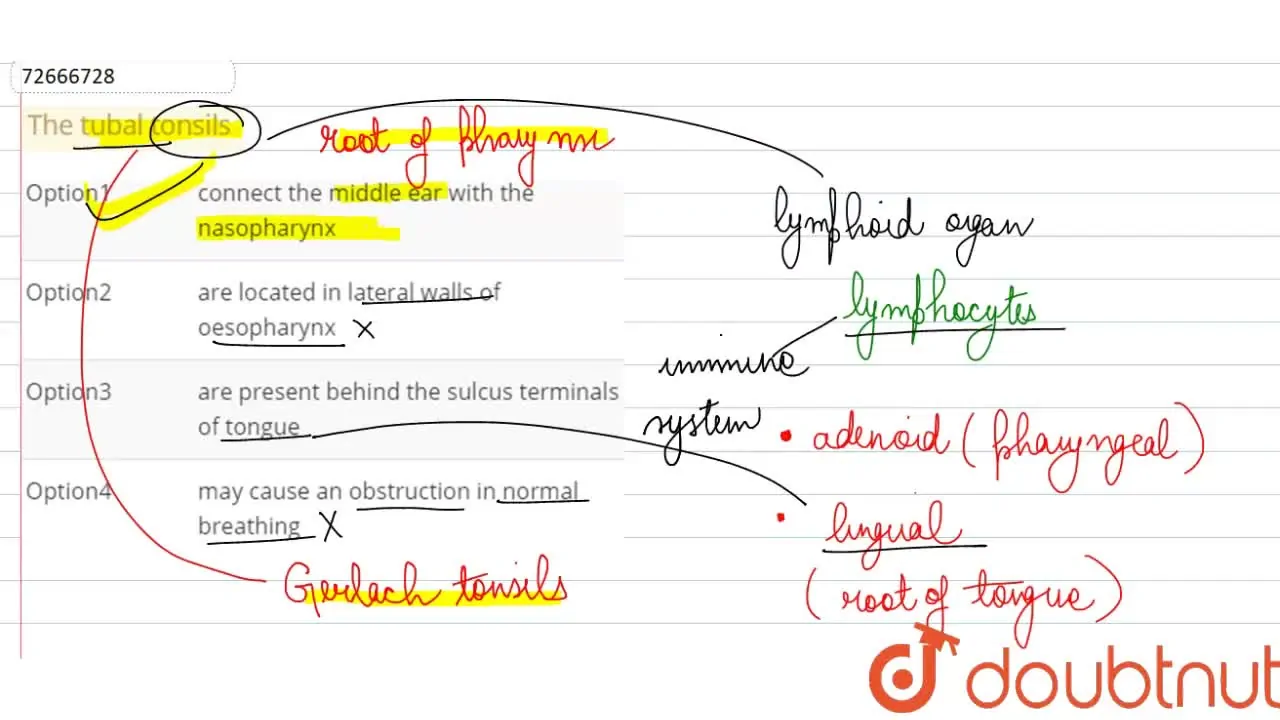 72666728
The tubal tonsils
root of pharynx
Option1 connect the middle ear with the
nasopharynx
Option2 are located in lateral walls of
oesopharynx X
Option3 are present behind the sulcus terminals
of tongue
Option4 may cause an obstruction in normal
breathing X
Gerlach tonsils
lymphoid organ
lymphocytes
immune
system
• adenoid (pharyngeal)
• lingual
(root of tongue)
doubtnut